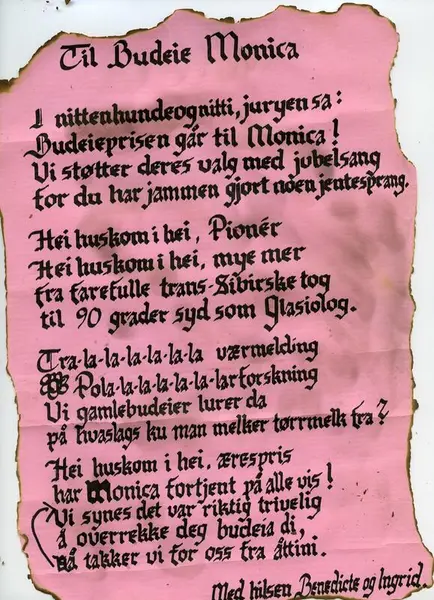 Til Budeie Monica
I nittenhundeognitti, juryen sa:
Budeieprisen går til Monica!
Vi støtter deres valg med jubelsang
for du har jammen gjort noen jentesprang.
Hei huskom i hei, Pionér
Hei huskom i hei, mye mer
fra farefulle trans-Sibirske tog
til 90 grader syd som Glasiolog.
Tra-la-la-la-la-la-la værmelding
Pola-la-la-la-la-la-larforskning
Vi gamlebudeier lurer da
på hvaslags ku man melker tørrmelk fra?
Hei huskom i hei, ærespris
har Monica fortjent på alle vis!
Vi synes det var riktig trivelig
å overrekke deg budeia di,
nå takker vi for oss fra åttini.
Med hilsen Benedicte og Ingrid.